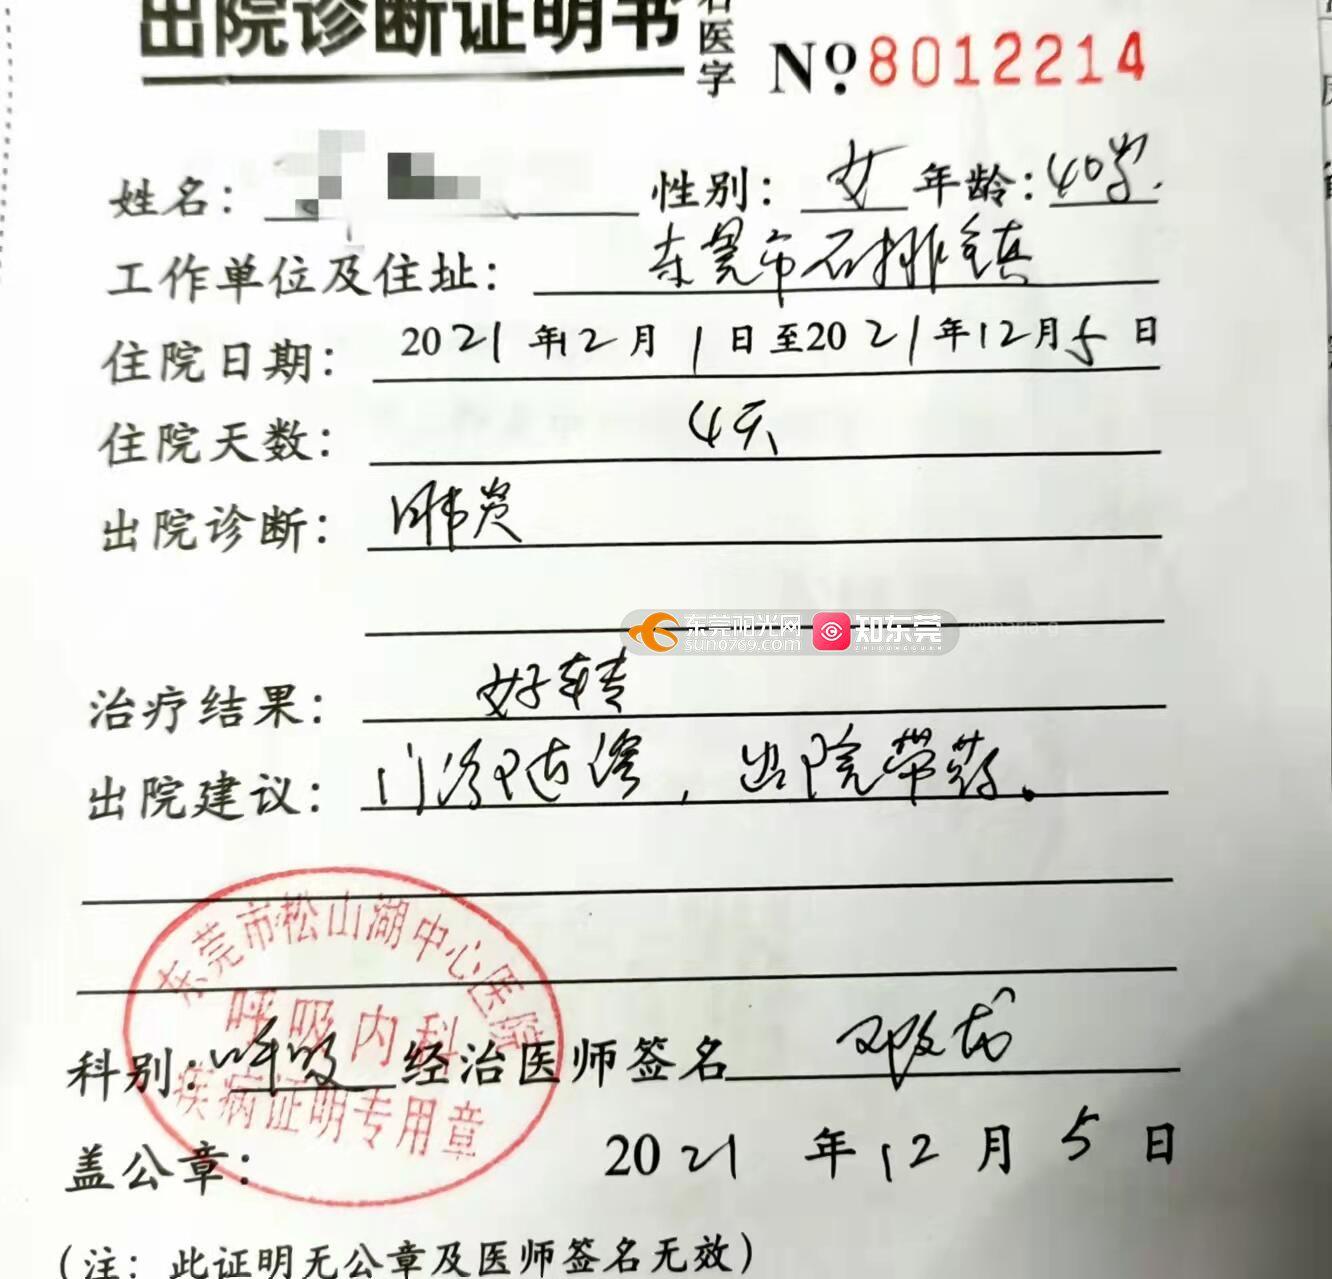 出院诊断证明书 医字 №8012214
姓名： 性别：女 年龄：40岁.
工作单位及住址：东莞市石排镇
住院日期：2021年12月1日至2021年12月5日
住院天数：4天
出院诊断：肺炎
东莞阳光网 sun0769.com 知东莞 ZHIDONGGUAN
治疗结果：好转
出院建议：门诊随诊，出院带药。
东莞市松山湖中心医院
呼吸内科
科别：呼吸 经治医师签名
疾病证明专用章
盖公章： 2021年12月5日
（注：此证明无公章及医师签名无效）